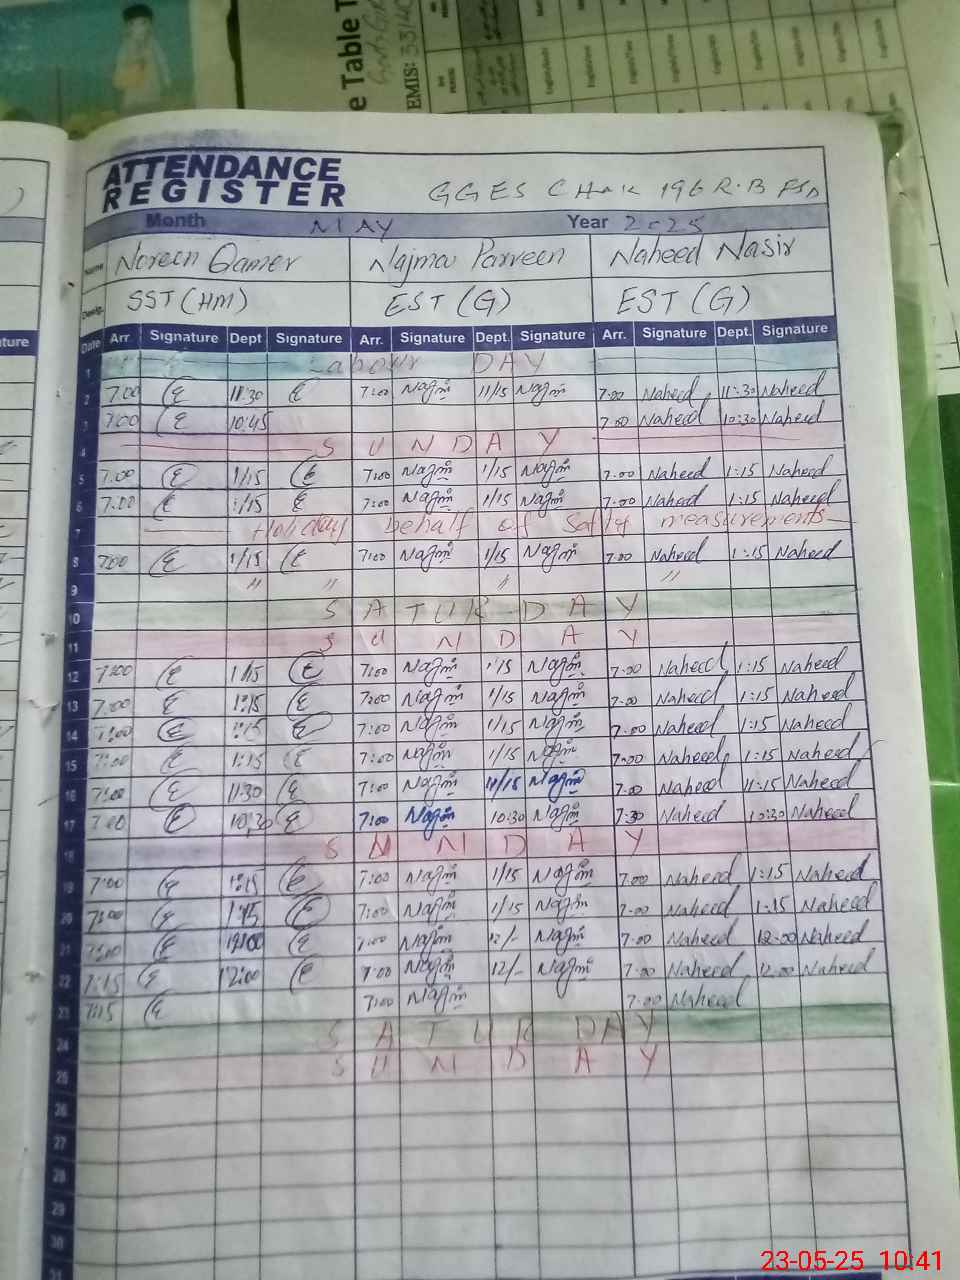 e Table T
EMIS: 3314C
ATTENDANCE
REGISTER
GGES CHAK 196 R.B FSD
Month MAY Year 2025
Name Noreen Qamer Najma Parveen Naheed Nasir
Desig. SST (HM) EST (G) EST (G)
ature
Date Arr. Signature Dept Signature Arr. Signature Dept. Signature Arr. Signature Dept. Signature
1 Labour DAY
2 7.00 11:30 7:00 Najm 11/15 Najm 7.00 Naheed 11:30 Naheed
3 7:00 10:45 7.00 Naheed 10:30 Naheed
4 SUNDAY
5 7.00 1/15 7:00 Najm 1/15 Najm 7.00 Naheed 1:15 Naheed
6 7.00 1/15 7:00 Najm 1/15 Najm 7.00 Naheed 1:15 Naheed
7 Holiday behalf of measurements
8 7:00 1/15 7:00 Najm 1/15 Najm 7.00 Naheed 1:15 Naheed
9 " " " "
10 SATURDAY
11 SUNDAY
12 7:00 1:15 7:00 Najm 1/15 Najm 7.00 Naheed 1:15 Naheed
13 7:00 1:15 7:00 Najm 1/15 Najm 7.00 Naheed 1:15 Naheed
14 7:00 1:15 7:00 Najm 1/15 Najm 7.00 Naheed 1:15 Naheed
15 7:00 1:15 7:00 Najm 1/15 Najm 7.00 Naheed 1:15 Naheed
16 7:00 11:30 7:00 Najm 11/15 Najm 7.00 Naheed 11:15 Naheed
17 7.00 10:30 7:00 Najm 10:30 Najm 7:30 Naheed 10:30 Naheed
18 SUNDAY
19 7:00 1:15 7:00 Najm 1/15 Najm 7.00 Naheed 1:15 Naheed
20 7:00 1:15 7:00 Najm 1/15 Najm 7.00 Naheed 1:15 Naheed
21 7:00 12:00 7:00 Najm 12/- Najm 7.00 Naheed 12.00 Naheed
22 7:15 12:00 7:00 Najm 12/- Najm 7.00 Naheed 12.00 Naheed
23 7:15 7:00 Najm 7.00 Naheed
24 SATURDAY
25 SUNDAY
26
27
28
29
30
31
23-05-25 10:41